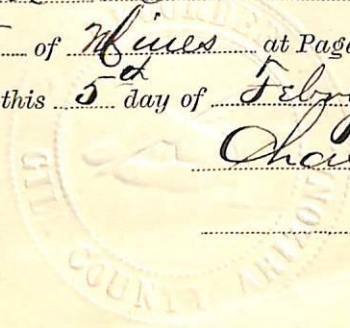 of Mines at Page
this 5th day of Febry
Cha
GILA COUNTY ARIZONA